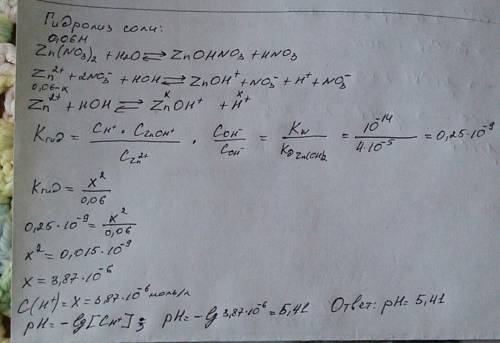 Гидролиз соли:
0,06н
Zn(NO₃)₂ + H₂O ⇄ ZnOHNO₃ + HNO₃
Zn²⁺ + 2NO₃⁻ + HOH ⇄ ZnOH⁺ + NO₃⁻ + H⁺ + NO₃⁻
0,06-x x x
Zn²⁺ + HOH ⇄ ZnOH⁺ + H⁺
Kгид = (CH⁺ · CZnOH⁺)/(CZn²⁺) · COH⁻/COH⁻ = Kw/KдZn(OH)₂ = 10⁻¹⁴/4·10⁻⁵ = 0,25·10⁻⁹
Kгид = x²/0,06
0,25·10⁻⁹ = x²/0,06
x² = 0,015·10⁻⁹
x = 3,87·10⁻⁶
C(H⁺) = x = 3,87·10⁻⁶ моль/л
pH = -lg[CH⁺]; pH = -lg 3,87·10⁻⁶ = 5,41 Ответ: pH = 5,41